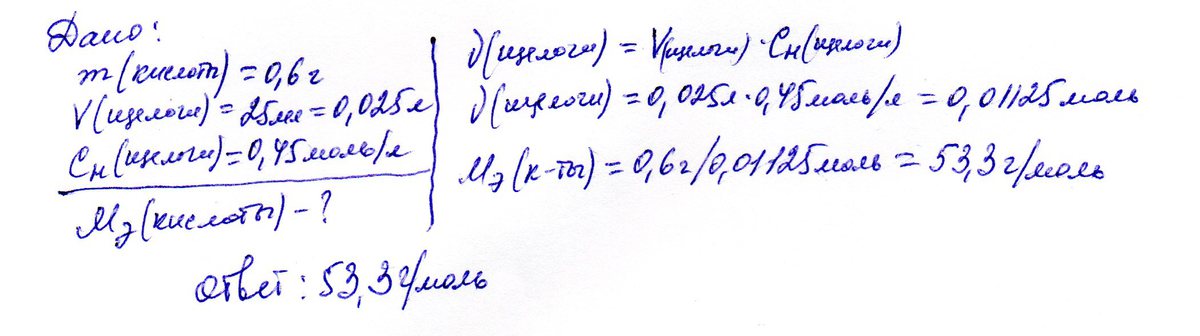 Дано:
m(кислоты) = 0,6 г
V(щелочи) = 25мл = 0,025л
Cн(щелочи) = 0,45моль/л
Mэ(кислоты) - ?
ν(щелочи) = V(щелочи) · Cн(щелочи)
ν(щелочи) = 0,025л · 0,45моль/л = 0,01125 моль
Mэ(к-ты) = 0,6г/0,01125моль = 53,3 г/моль
ответ: 53,3г/моль